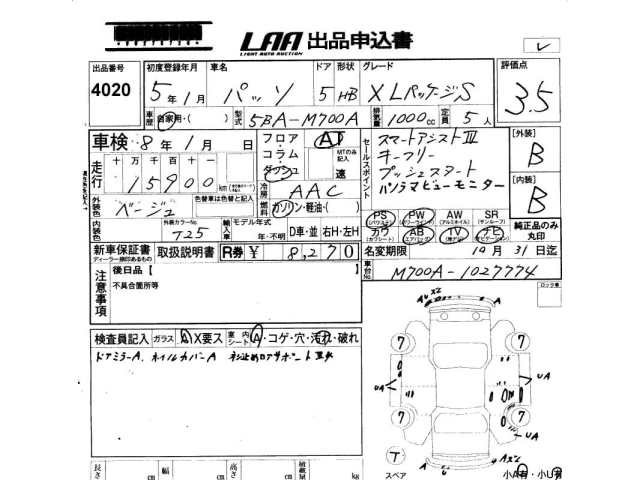 LAA 出品申込書
LIGHT AUTO AUCTION
出品番号
4020
初度登録年月
5年1月
車名
パッソ
ドア
5
形状
HB
グレード
X LパッケージS
評価点
3.5
車歴
自家用・( )
型式
5BA-M700A
排気量
1000cc
定員
5人
車検 8年1月 日
フロア・コラム・ダッシュ
AT
MTのみ記入
速
セールスポイント
スマートアシストⅢ
キーフリー
プッシュスタート
パノラマビューモニター
[外装]
B
[内装]
B
走行
十万千百十
15900km
冷房
AAC
燃料
ガソリン・軽油・( )
外装色
ベージュ
色替車は色替と記入
内装色
外装カラーNo.
T25
輸入車
モデル年式
年・不明
D車・並 右H・左H
PS (パワステ)
PW (パワーウインド)
AW (アルミホイル)
SR (サンルーフ)
カワ (カワシート)
AB (エアバッグ)
TV
ナビ (ナビゲーション)
純正品のみ丸印
新車保証書
ディーラー捺印あるもの
取扱説明書
R券
¥8,270
名変期限
19月31日迄
車台No.
M700A-1027774
注意事項
後日品【
不具合箇所等
ロック車
検査員記入
ガラス A X要ス
室内シート A・コゲ・穴・汚れ・破れ
ドアミラーA. ホイルカバーA
7
7
7
7
UA
UA
UA
T
スペア
小A有・小U有
長さ
cm
幅
cm
高さ
cm
積載量
kg